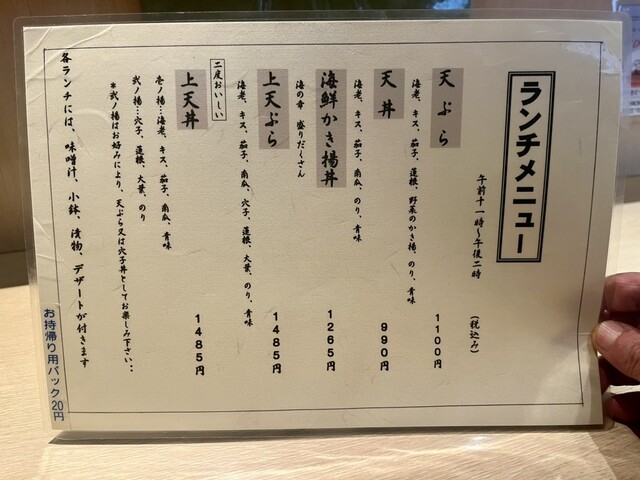 ランチメニュー
午前十一時～午後二時
(税込み)
天ぷら
海老、キス、茄子、蓮根、野菜のかき揚、のり、青味
1100円
天丼
海老、キス、茄子、南瓜、のり、青味
990円
海鮮かき揚丼
海の幸 盛りだくさん
1265円
上天ぷら
海老、キス、茄子、南瓜、穴子、蓮根、大葉、のり、青味
1485円
二度おいしい
上天丼
壱ノ揚…海老、キス、茄子、南瓜、青味
弐ノ揚…穴子、蓮根、大葉、のり
*弐ノ揚はお好みにより、天ぷら又は穴子丼としてお楽しみ下さい…
1485円
各ランチには、味噌汁、小鉢、漬物、デザートが付きます
お持帰り用パック20円